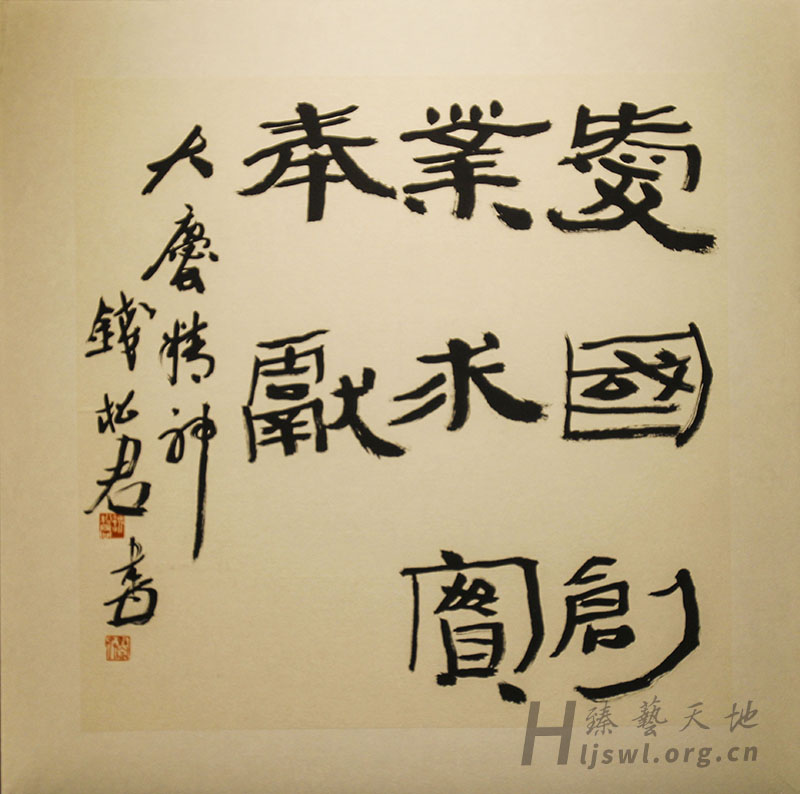 愛國創
業求實
奉獻
大慶精神
錢松君書
臻藝天地
Hljswl.org.cn